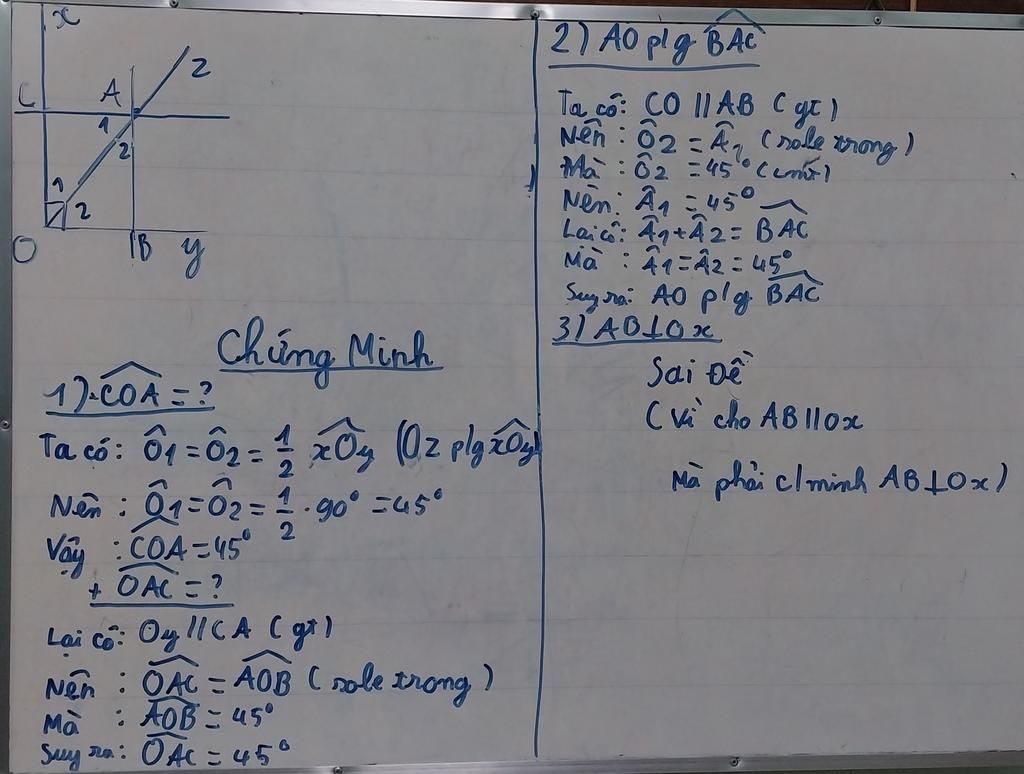 x
C A z
1
2
1
2
O B y
Chứng Minh
1) COA = ?
Ta có: Ô1 = Ô2 = 1/2 xOy (Oz p/g xOy)
Nên : Ô1 = Ô2 = 1/2 . 90° = 45°
Vậy : COA = 45°
+ OAC = ?
Lại có: Oy // CA (gt)
Nên : OAC = AOB (sole trong)
Mà : AOB = 45°
Suy ra: OAC = 45°
2) AO p/g BAC
Ta có: CO // AB (gt)
Nên : Ô2 = Â1 (sole trong)
Mà : Ô2 = 45° (cmt)
Nên : Â1 = 45°
Lại có: Â1 + Â2 = BAC
Mà : Â1 = Â2 = 45°
Suy ra: AO p/g BAC
3) AB ⊥ Ox
Sai Đề
(Vì cho AB // Ox
Mà phải c/minh AB ⊥ Ox)